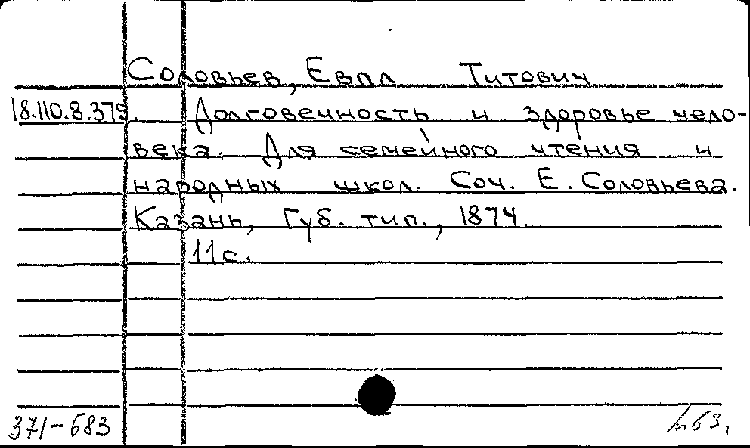 Соловьев, Евпл Титович
18.110.8.375. Долговечность и здоровье чело-
века. Для семейного чтения и
народных школ. Соч. Е. Соловьева.
Казань, Губ. тип., 1874.
11с.
371-683